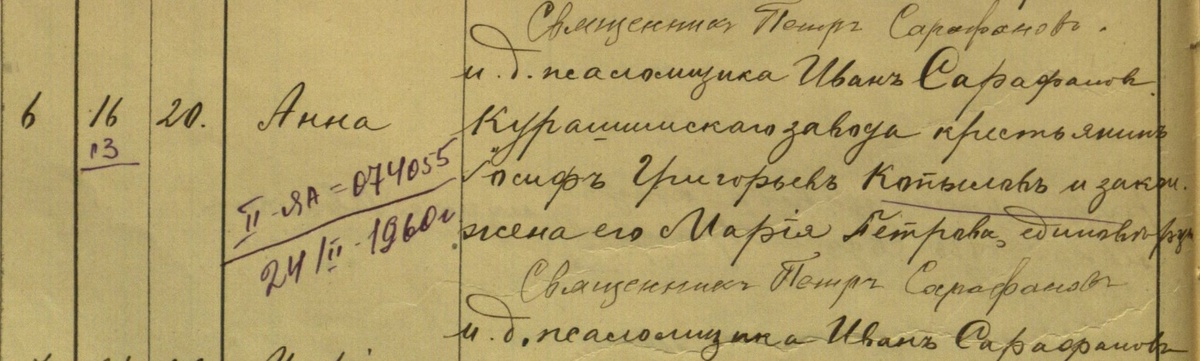 Священникъ Петръ Сарафановъ.
и. д. псаломщика Иванъ Сарафановъ.
6 16 20. Анна Курашимскаго завода крестьянинъ
13
Іосифъ Григорьевъ Копыловъ и закон.
II-ЯА=074055
жена его Марія Петрова, единоверцы
24/II-1960г
Священникъ Петръ Сарафановъ
и. д. псаломщика Иванъ Сарафановъ